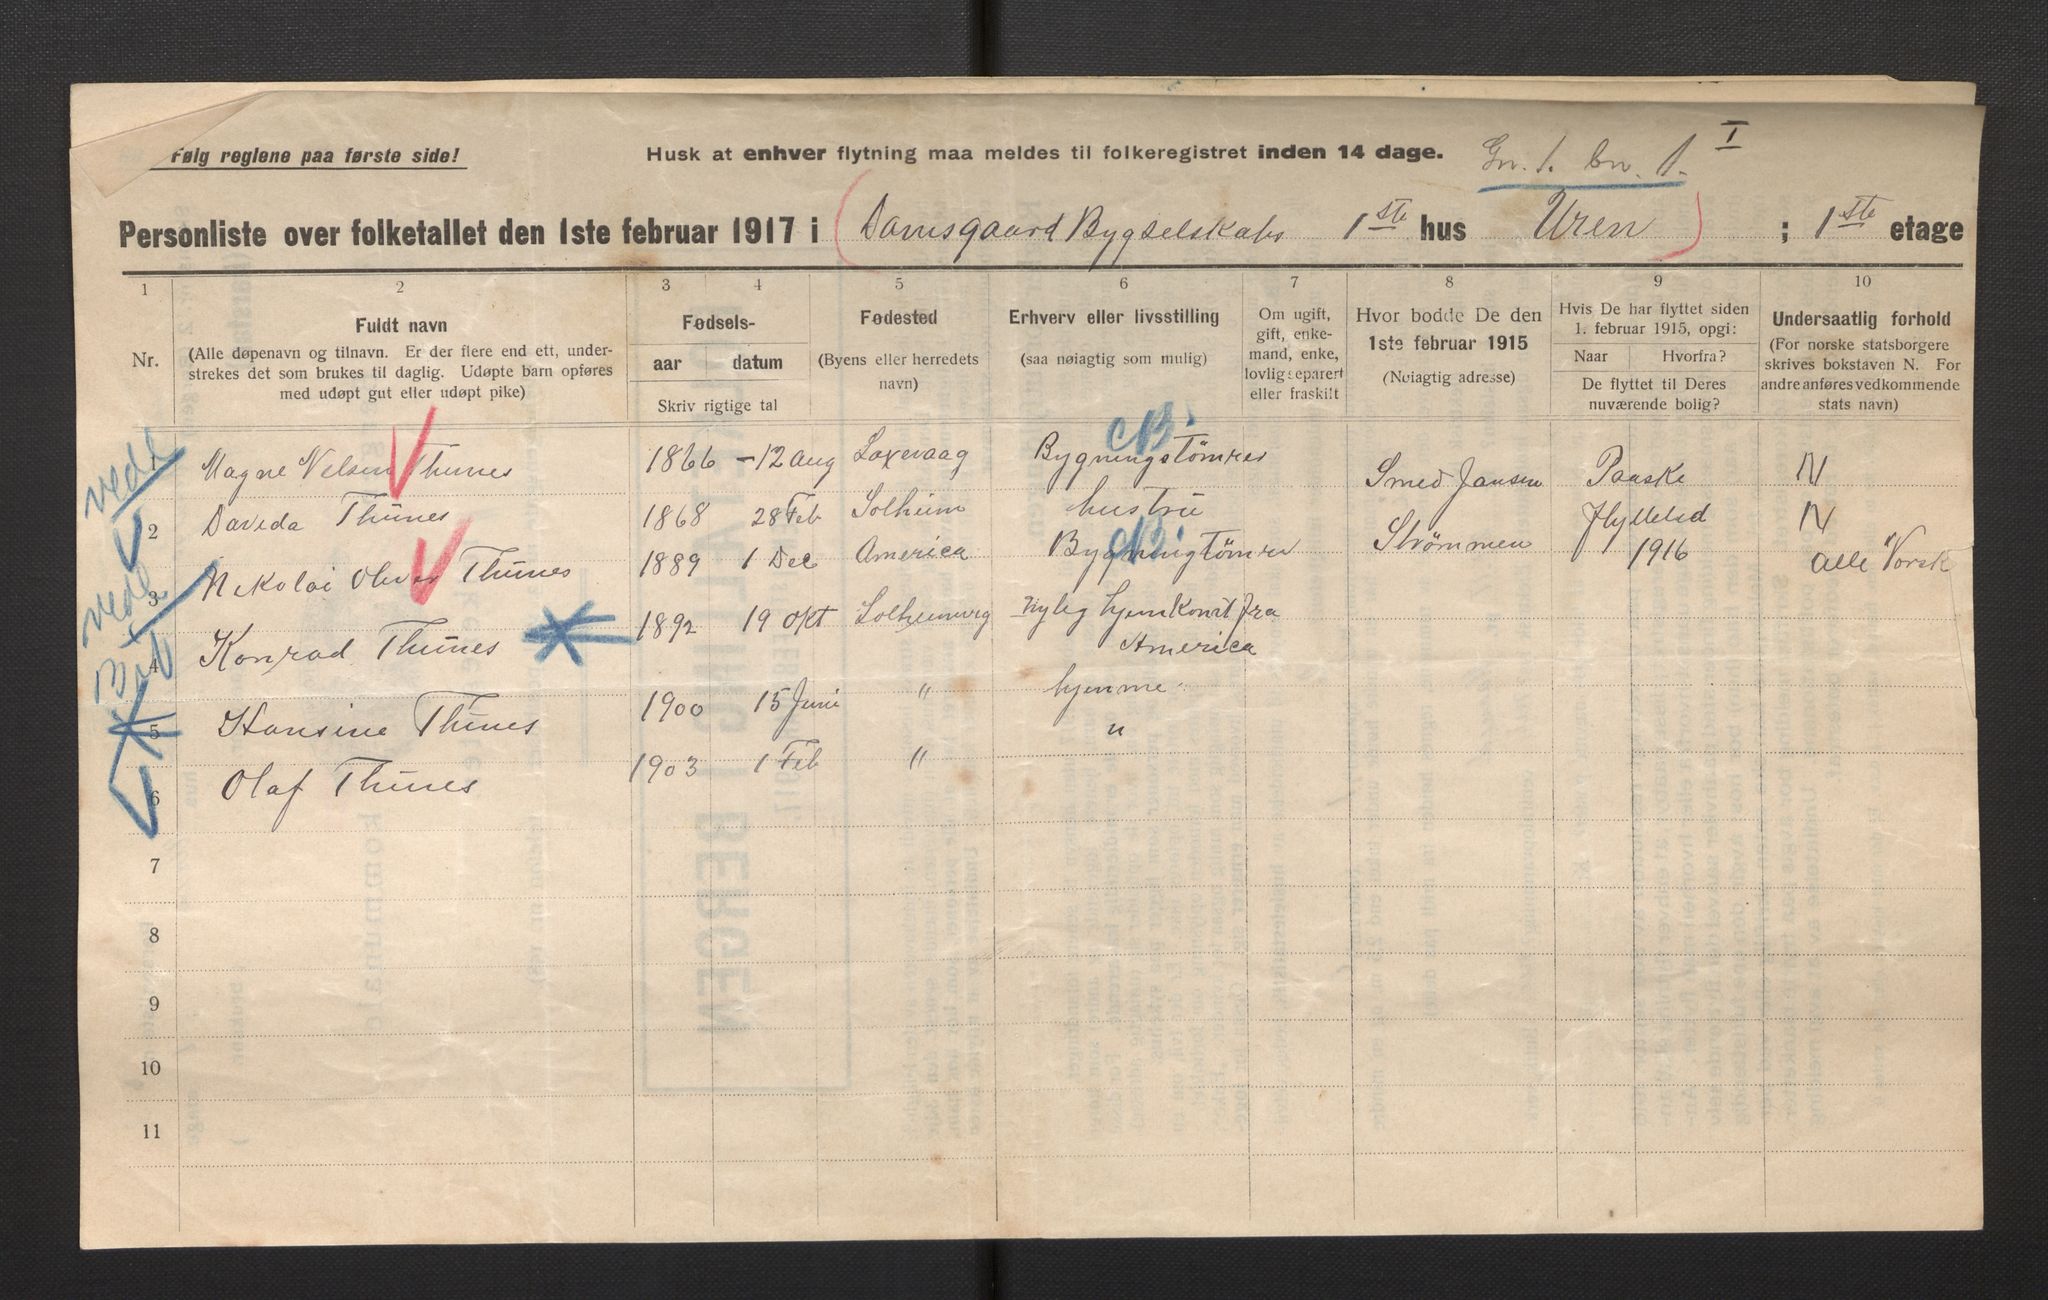 Følg reglene paa første side!
Husk at enhver flytning maa meldes til folkeregistret inden 14 dage.
Gn. 1. bn. 1. I
Personliste over folketallet den 1ste februar 1917 i (Damsgaard Bygselskabs 1ste hus Uren) ; 1ste etage
1 2 3 4 5 6 7 8 9 10
Nr.
Fuldt navn
(Alle døpenavn og tilnavn. Er der flere end ett, under-
strekes det som brukes til daglig. Udøpte barn opføres
med udøpt gut eller udøpt pike)
Fødsels-
aar datum
Skriv rigtige tal
Fødested
(Byens eller herredets
navn)
Erhverv eller livsstilling
(saa nøiagtig som mulig)
Om ugift,
gift, enke-
mand, enke,
lovlig separert
eller fraskilt
Hvor bodde De den
1ste februar 1915
(Nøiagtig adresse)
Hvis De har flyttet siden
1. februar 1915, opgi:
Naar Hvorfra?
De flyttet til Deres
nuværende bolig?
Undersaatlig forhold
(For norske statsborgere
skrives bokstaven N. For
andre anføres vedkommende
stats navn)
1 Magne Nelsen Thunes 1866 – 12 aug Laxevaag Bygningstømrer Smed Jansen Paaske N
2 Daveda Thunes 1868 28 Feb Solheim hustru Strömmen flyttet N
3 Nikolai Oliver Thunes 1889 1 Dec America Bygningtömrer 1916 alle Norsk
4 Konrad Thunes 1892 19 okt Solheimvig nylig hjemkomt fra
America
5 Hansine Thunes 1900 15 Juni " hjemme
6 Olaf Thunes 1903 1 Feb " "
7
8
9
10
11